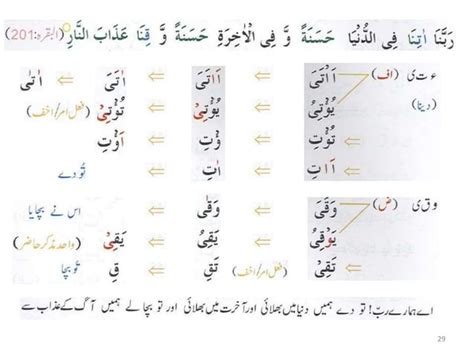 رَبَّنَا اٰتِنَا فِی الدُّنْیَا حَسَنَةً وَّ فِی الْاٰخِرَةِ حَسَنَةً وَّ قِنَا عَذَابَ النَّارِ (البقرہ:201)
ء ت ی (اف) اَاْتَیَ ⇐ اَاتَیَ ⇐ اٰتَیَ ⇐ اٰتٰی
(دینا) یُؤْتِیُ ⇐ یُؤْتِیْ ⇐ تُؤْتِیْ (فعل امر/اخف)
تُؤْتِ ⇐ ؤْتِ ⇐ اَؤْتِ
اَاْتِ ⇐ اٰتِ ⇐ تُو دے
و ق ی (ض) وَقَیَ ⇐ وَقٰی ⇐ اس نے بچایا
یَوْقِیُ ⇐ یَقِیُ ⇐ یَقِیْ (واحد مذکر حاضر)
تَقِیْ (فعل امر/اخف) ⇐ تَقِ ⇐ قِ ⇐ تُو بچا
اے ہمارے ربّ! تو دے ہمیں دنیا میں بھلائی اور آخرت میں بھلائی اور تو بچا لے ہمیں آگ کے عذاب سے
29